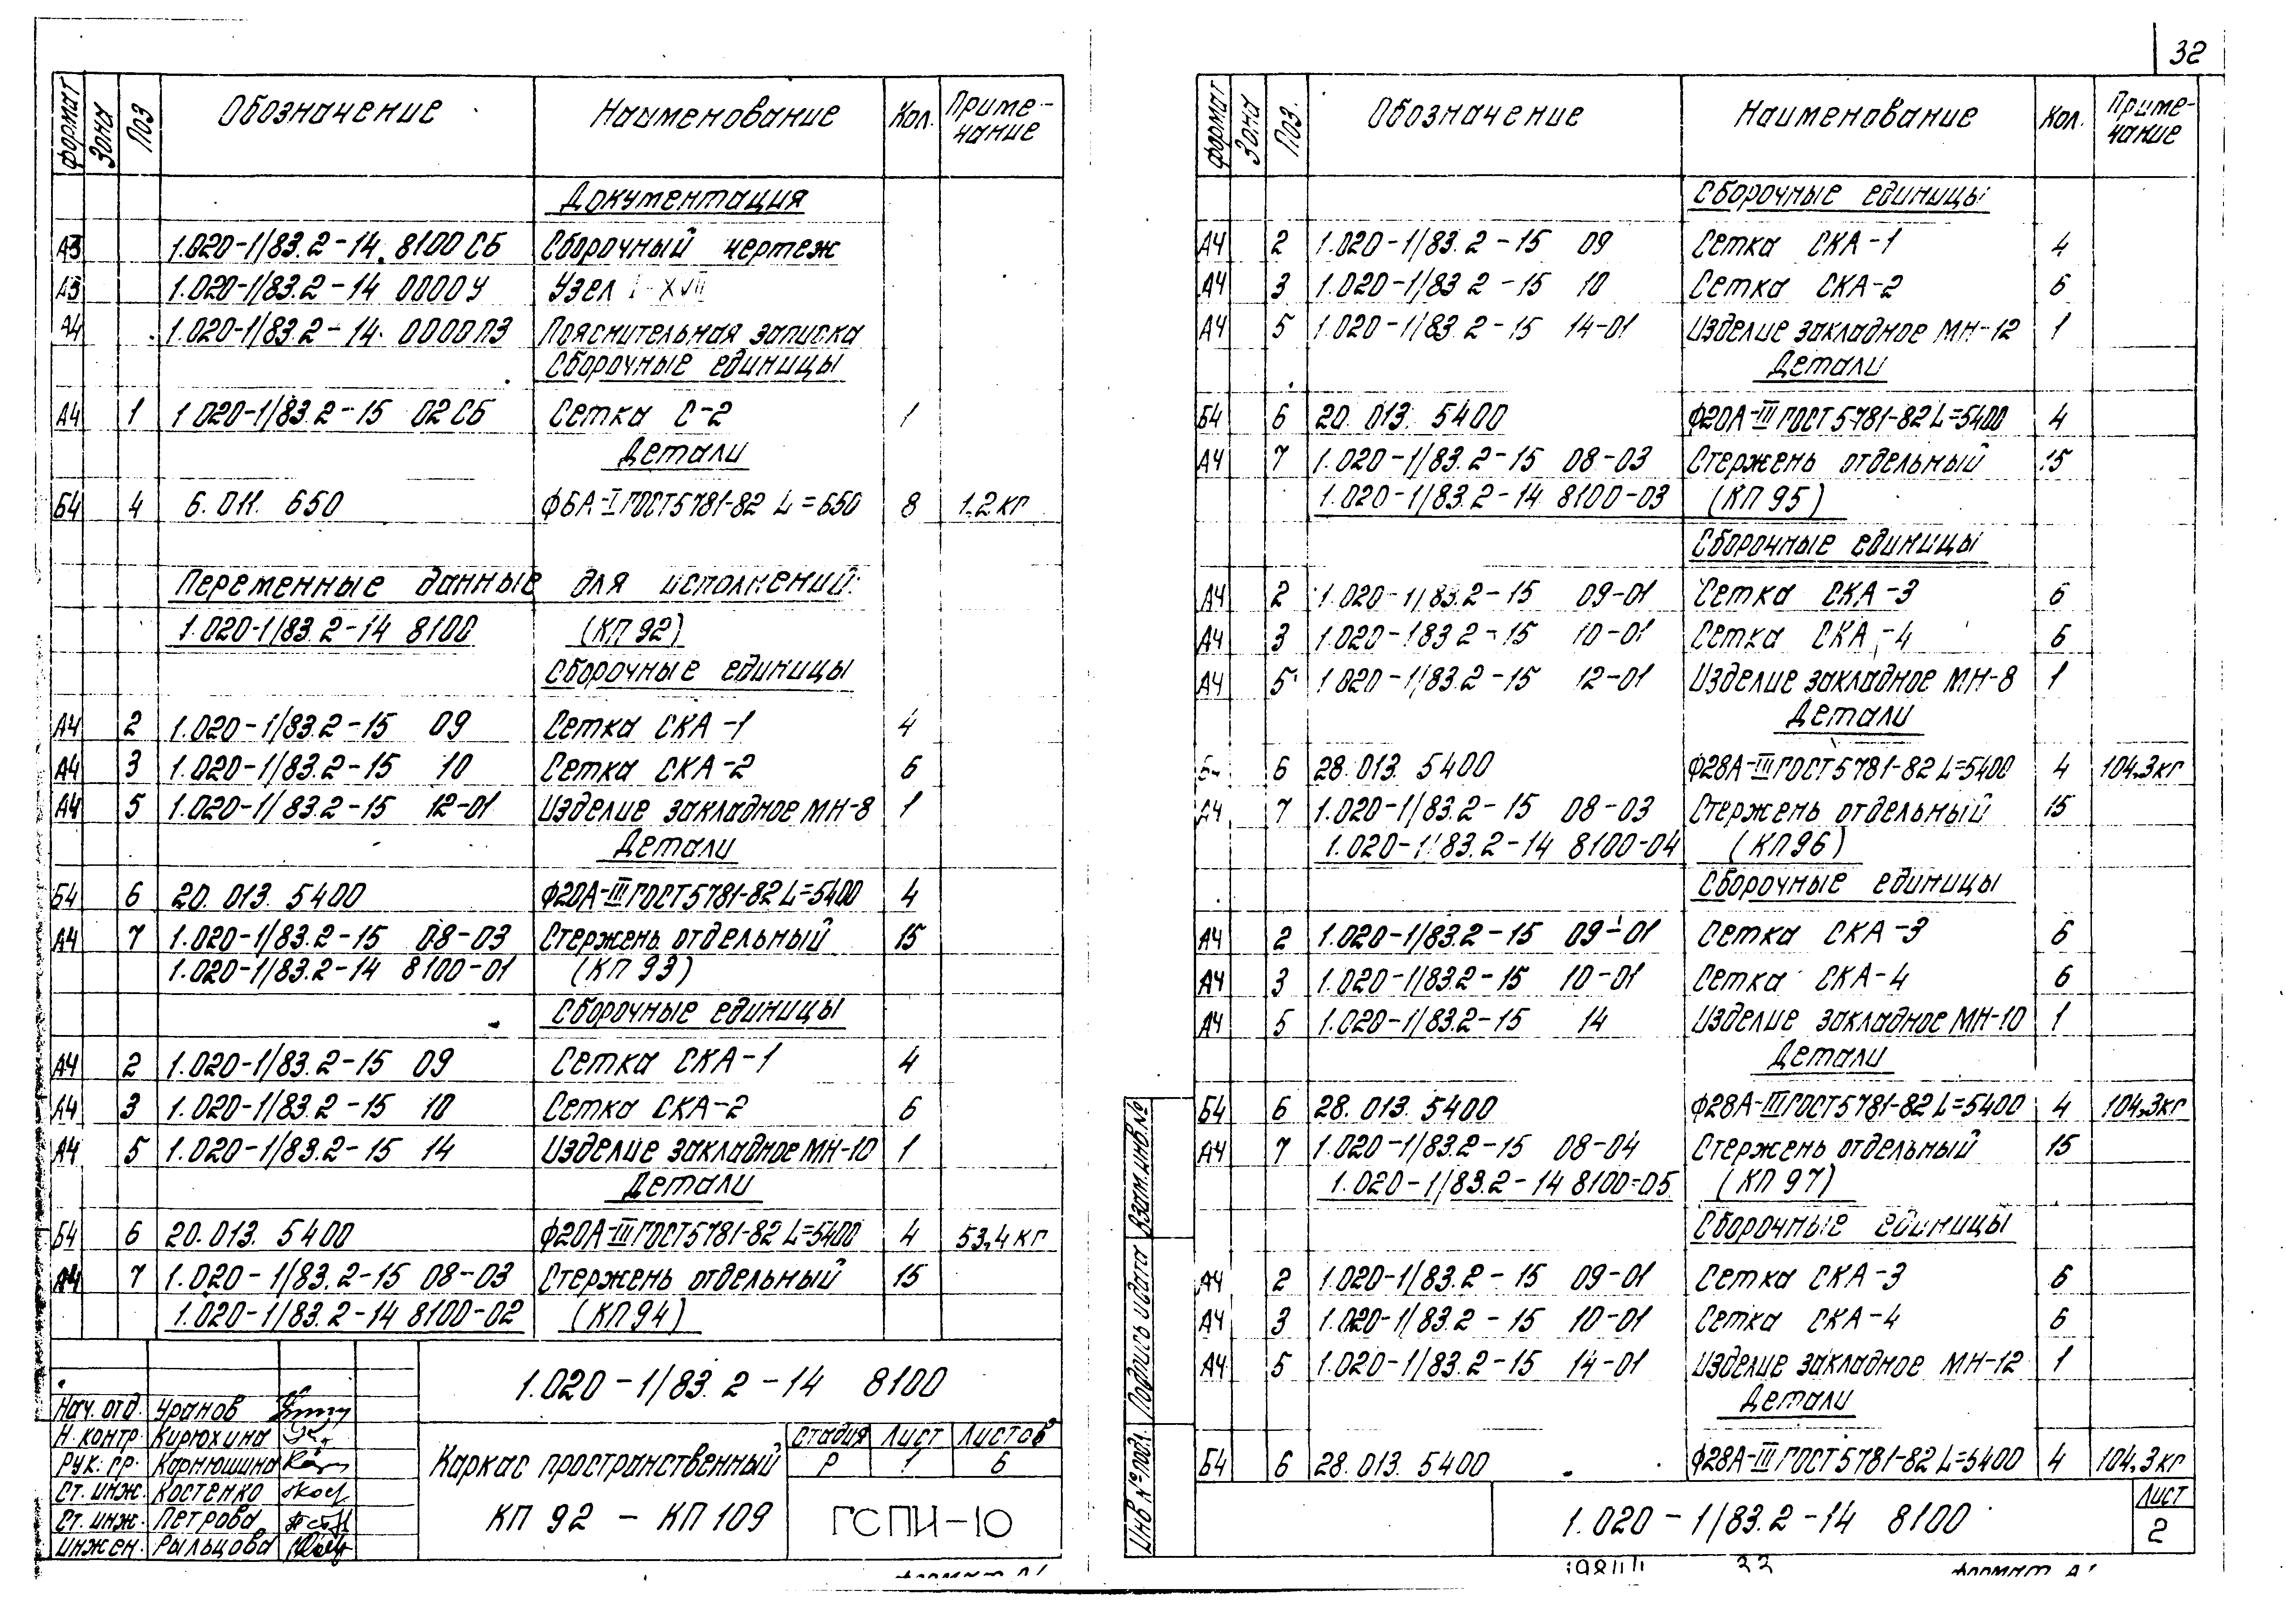 формат Зона Поз Обозначение Наименование Кол. Примечание
Документация
А3 1.020-1/83.2-14. 8100 СБ Сборочный чертеж
А3 1.020-1/83.2-14 0000У Узел I-XVII
А4 1.020-1/83.2-14. 0000ПЗ Пояснительная записка
Сборочные единицы
А4 1 1 020-1/83.2-15 02СБ Сетка С-2 1
Детали
Б4 4 6. 011. 650 Ф6А-I ГОСТ5781-82 L=650 8 1.2кг
Переменные данные для исполнений:
1.020-1/83.2-14 8100 (КП 92)
Сборочные единицы
А4 2 1.020-1/83.2-15 09 Сетка СКА-1 4
А4 3 1.020-1/83.2-15 10 Сетка СКА-2 6
А4 5 1.020-1/83.2-15 12-01 Изделие закладное МН-8 1
Детали
Б4 6 20. 013. 5400 Ф20А-III ГОСТ5781-82 L=5400 4
А4 7 1.020-1/83.2-15 08-03 Стержень отдельный 15
1.020-1/83.2-14 8100-01 (КП 93)
Сборочные единицы
А4 2 1.020-1/83.2-15 09 Сетка СКА-1 4
А4 3 1.020-1/83.2-15 10 Сетка СКА-2 6
А4 5 1.020-1/83.2-15 14 Изделие закладное МН-10 1
Детали
Б4 6 20.013. 5400 Ф20А-III ГОСТ5781-82 L=5400 4 53,4кг
А4 7 1.020-1/83.2-15 08-03 Стержень отдельный 15
1.020-1/83.2-14 8100-02 (КП94)
1.020-1/83.2-14 8100
Нач. отд. Уранов
Н. контр. Кирюхина
Рук. гр. Карнюшина
Ст. инж. Костенко
Ст. инж. Петрова
Инжен. Рыльцова
Каркас пространственный
КП 92 - КП 109
Стадия Лист Листов
Р 1 6
ГСПИ-10
формат
32
формат Зона Поз. Обозначение Наименование Кол. Примечание
Сборочные единицы
А4 2 1.020-1/83.2-15 09 Сетка СКА-1 4
А4 3 1.020-1/83 2-15 10 Сетка СКА-2 6
А4 5 1.020-1/83 2-15 14-01 Изделие закладное МН-12 1
Детали
Б4 6 20. 013. 5400 Ф20А-III ГОСТ5781-82 L=5400 4
А4 7 1.020-1/83.2-15 08-03 Стержень отдельный 15
1.020-1/83.2-14 8100-03 (КП 95)
Сборочные единицы
А4 2 1.020-1/83.2-15 09-01 Сетка СКА-3 6
А4 3 1.020-183 2-15 10-01 Сетка СКА-4 6
А4 5 1 020-1/83.2-15 12-01 Изделие закладное МН-8 1
Детали
Б4 6 28. 013. 5400 Ф28А-III ГОСТ5781-82 L=5400 4 104,3кг
А4 7 1.020-1/83.2-15 08-03 Стержень отдельный 15
1.020-1/83.2-14 8100-04 (КП96)
Сборочные единицы
А4 2 1.020-1/83.2-15 09-01 Сетка СКА-3 6
А4 3 1.020-1/83.2-15 10-01 Сетка СКА-4 6
А4 5 1.020-1/83.2-15 14 Изделие закладное МН-10 1
Детали
Б4 6 28. 013. 5400 Ф28А-III ГОСТ5781-82 L=5400 4 104,3кг
А4 7 1.020-1/83.2-15 08-04 Стержень отдельный 15
1.020-1/83.2-14 8100-05 (КП 97)
Сборочные единицы
А4 2 1.020-1/83.2-15 09-01 Сетка СКА-3 6
А4 3 1.020-1/83.2-15 10-01 Сетка СКА-4 6
А4 5 1.020-1/83.2-15 14-01 Изделие закладное МН-12 1
Детали
Б4 6 28. 013. 5400 Ф28А-III ГОСТ5781-82 L=5400 4 104,3кг
Инв № подл. Подпись и дата Взам. инв №
1.020-1/83.2-14 8100
Лист
2
формат